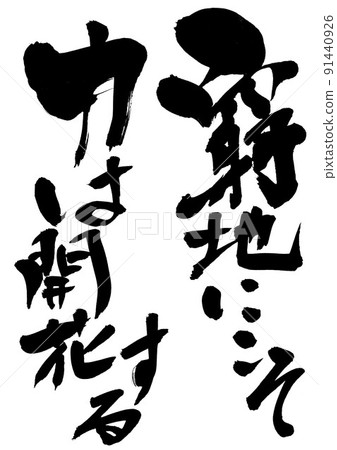 窮地にこそ
力は開花
する
PIXTA
91440926